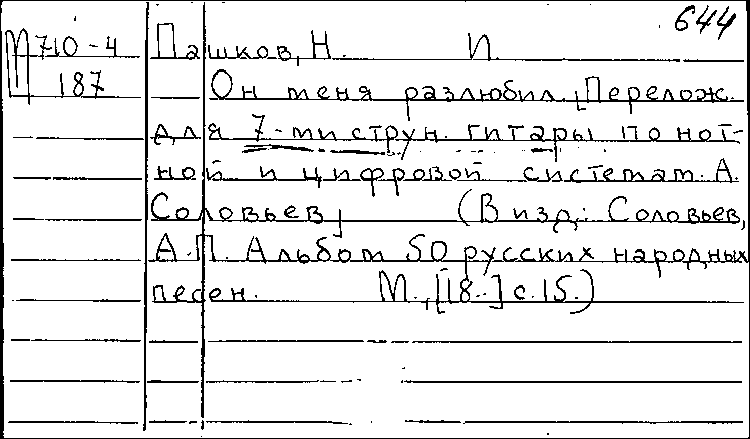 644
М710-4 Пашков, Н. И.
187 Он меня разлюбил. [Перелож.
для 7-ми струн. гитары по нот-
ной и цифровой системам. А.
Соловьев] (В изд.: Соловьев,
А.П. Альбом 50 русских народных
песен. М., [18..] с.15.)